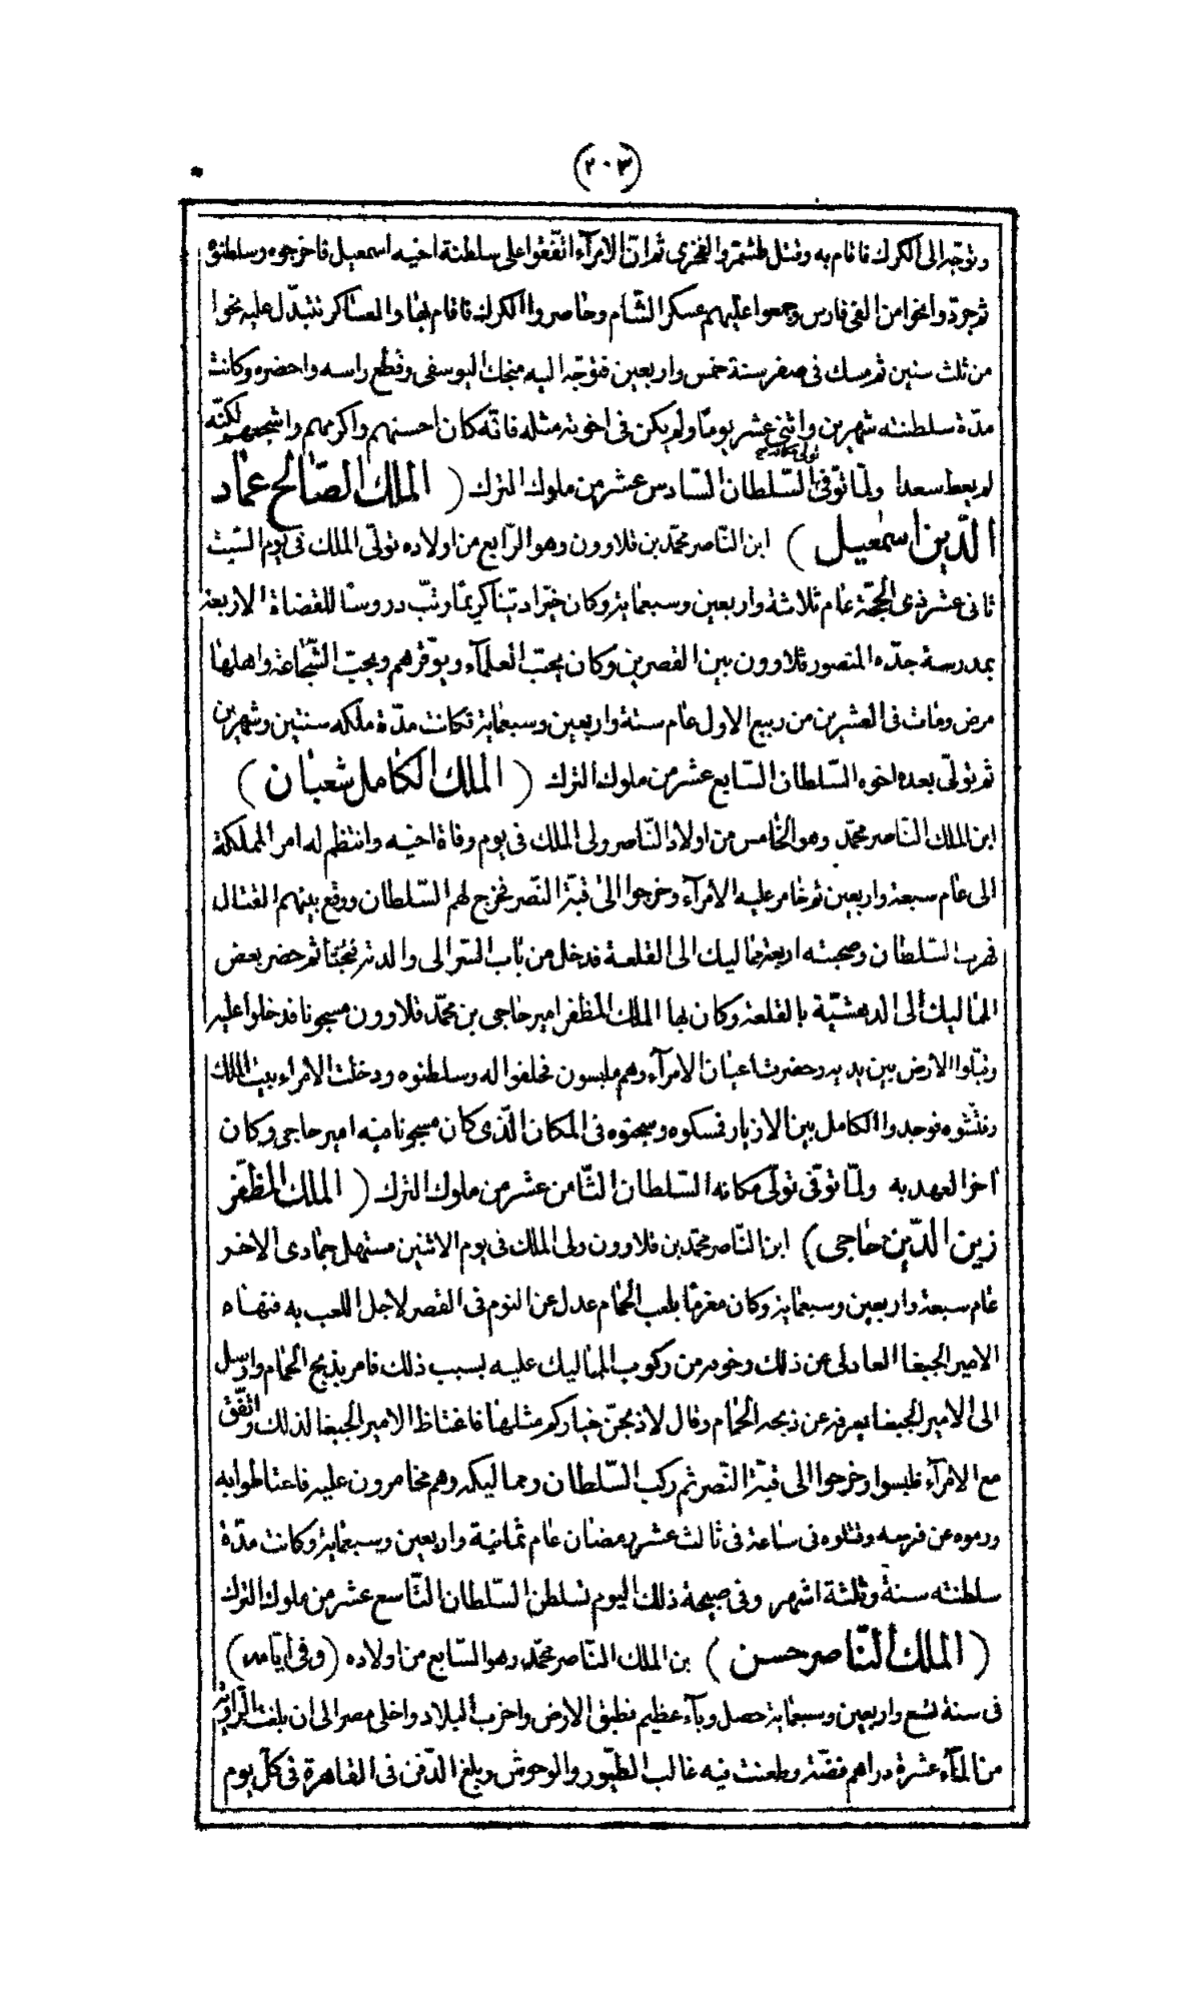 (٢٠٣)
وتوجّه الى الكرك فاقام به وقتل طشتمر والفخرى ثم انّ الامرآء اتّفقوا على سلطنة اخيه اسمعيل فاخرجوه وسلطنوه
ثم جرّدوا نحوا من الفى فارس وجمعوا عليهم عسكر الشّام وحاصروا الكرك فاقام بها والعساكر تتبدّل عليه نحوا
من ثلث سنين ثم مسك فى صفر سنة خمس واربعين فتوجّه اليه منجك اليوسفى وقطع راسه واحضره وكانت
مدّة سلطنته شهرين واثنى عشر يومًا ولم يكن فى اخوته مثله فانّه كان احسنهم واكرمهم واشجعهم لكنّه
لم يعط سعدا ولمّا توّفى تولى مكانه السّلطان السّادس عشر من ملوك الترك ( الملك الصّالح عماد
الدّين اسمعيل ) ابن النّاصر محمّد بن قلاوون وهو الرّابع من اولاده تولّى الملك فى يوم السّبت
ثانى عشر ذى الحجّة عام ثلاثة واربعين وسبعماية وكان خيّرا ديّنا كريمًا رتّب دروسًا للقضاة الاربعة
بمدرسة جدّه المنصور قلاوون بين القصرين وكان يحبّ العلمآء ويوّقرهم ويحبّ الشّجاعة واهلها
مرض ومات فى العشرين من ربيع الاول عام ستة واربعين وسبعماية فكانت مدّة ملكه سنتين وشهرين
ثم تولّى بعده اخوه السّلطان السّابع عشر من ملوك الترك ( الملك الكامل شعبان )
ابن الملك النّاصر محمّد وهو الخامس من اولاد النّاصر ولى الملك فى يوم وفاة اخيه وانتظم له امر المملكة
الى عام سبعة واربعين ثم خامر عليه الامرآء وخرجوا الى قبّة النّصر فخرج لهم السّلطان ووقع بينهم القتال
فهرب السّلطان وصحبته اربعة مماليك الى القلعة فدخل من باب السّر الى والدته فخبّته ثم حضر بعض
المماليك الى الدهشيّة بالقلعة وكان بها الملك المظفر امير حاجى بن محمّد قلاوون مسجونا فدخلوا عليه
وقبّلوا الارض بين يديه وحضرت اعيان الامرآء وهم ملبسون فحلفوا له وسلطنوه ودخلت الامراء بيت الملك
وفتّشوه فوجدوا الكامل بين الازيار فمسكوه وسجنوه فى المكان الّذى كان مسجونا فيه امير حاجى وكان
آخر العهد به ولمّا توفّى تولّى مكانه السّلطان الثّامن عشر من ملوك الترك ( الملك المظفّر
زين الدّين حاجى) ابن النّاصر محمّد بن قلاوون ولى الملك فى يوم الاثنين مستهل جمادى الاخر
عام سبعة واربعين وسبعماية وكان مغرمًا بلعب الحمام عدل عن النوم فى القصر لاجل اللعب به فنهاه
الامير الجيغا العادلى عن ذلك وخوفه من ركوب المماليك عليه بسبب ذلك فامر بذبح الحمام وارسل
الى الامير الجيغا يعرفه عن ذبحه الحمام وقال لاذبحنّ خياركم مثلها فاغتاظ الامير الجيغا لذلك واتّفق
مع الامرآء فلبسوا وخرجوا الى قبّة النّصر ثم ركب السّلطان ومماليكه وهم مخامرون عليه فاحتاطوا به
ورموه عن فرسه وقتلوه فى ساعة فى ثالث عشر رمضان عام ثمانية واربعين وسبعماية وكانت مدّة
سلطنته سنة وثلثة اشهر وفى صبيحة ذلك اليوم تسلطن السّلطان التّاسع عشر من ملوك الترك
( الملك النّاصر حسن ) بن الملك النّاصر محمّد وهو السّابع من اولاده (وفى ايّامه)
فى سنة تسع واربعين وسبعماية حصل وبآء عظيم فطبق الارض واخرب البلاد واخلى مصر الى ان بلغت الرّاوية
من المآء عشرة دراهم فضّة وطعنت فيه غالب الطّيور والوحوش وبلغ الدّفن فى القاهرة فى كلّ يوم